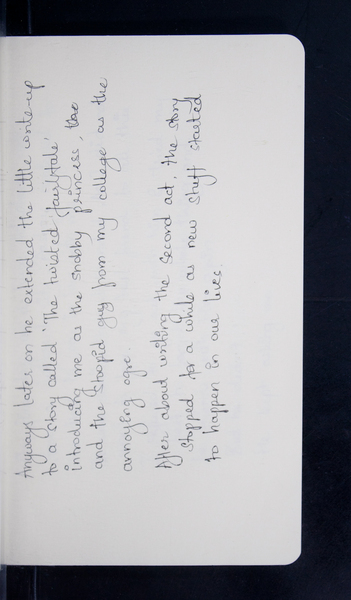 Anyways later on he extended the little write-up
to a story called 'The twisted fairytale'
introducing me as the snobby princess,
and the stoopid guy from my college as the
annoying ogre.
After about writing the second act, the story
stopped for a while as new stuff started
to happen in our lives.